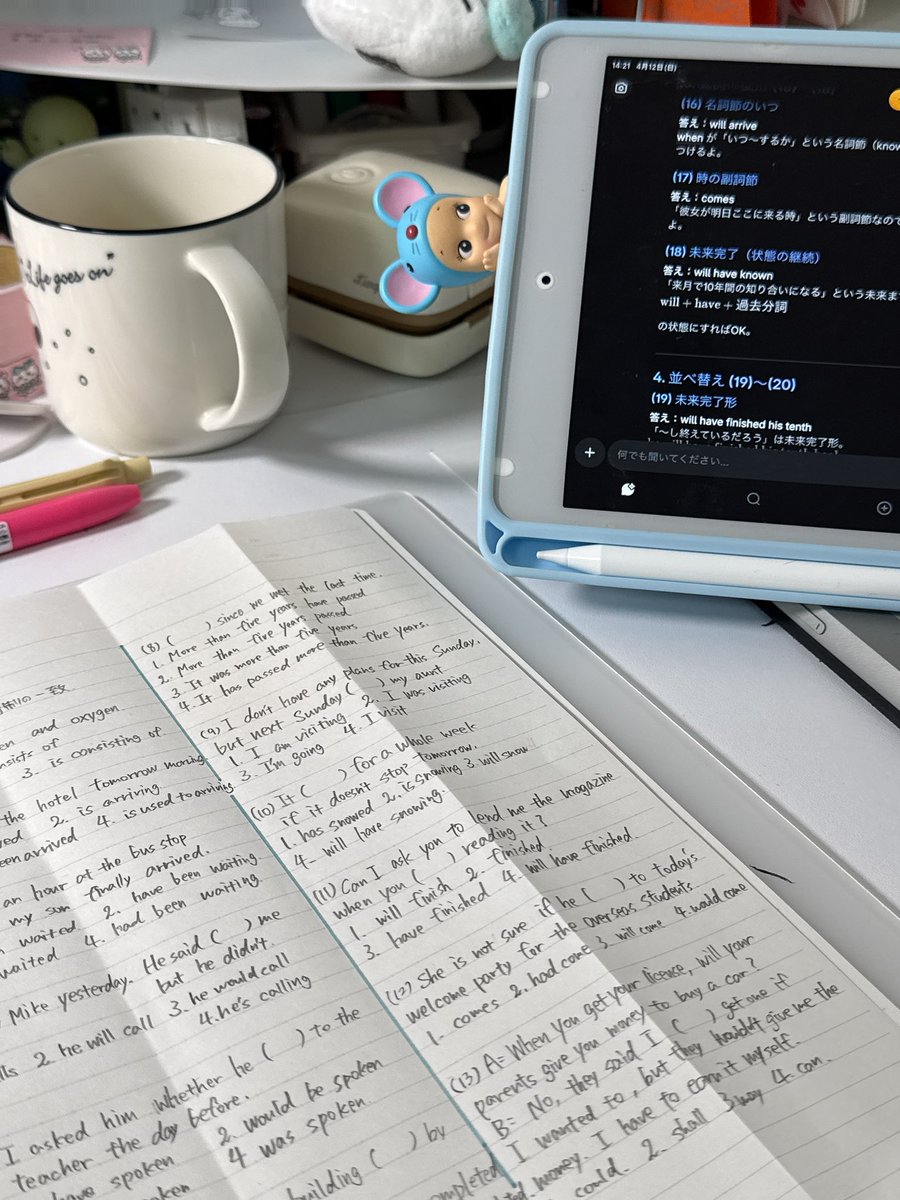 "Life goes on"
14:21 4月12日(日)
(16) 名詞節のいつ
答え:will arrive
when が「いつ〜するか」という名詞節(know
つけるよ。
(17) 時の副詞節
答え:comes
「彼女が明日ここに来る時」という副詞節なので
よ。
(18) 未来完了(状態の継続)
答え:will have known
「来月で10年間の知り合いになる」という未来ま
will + have + 過去分詞
の状態にすればOK。
4. 並べ替え (19)〜(20)
(19) 未来完了形
答え:will have finished his tenth
「〜し終えているだろう」は未来完了形。
何でも聞いてください...
の一致
en and oxygen
nsists of
3. is consisting of
the hotel tomorrow morning
ved 2. is arriving
een arrived 4. is used to arriving
an hour at the bus stop
my finally arrived.
waited 2. have been waiting
waited 4. had been waiting
Mike yesterday. He said ( ) me
but he didn't.
lls 2. he will call 3. he would call
4. he's calling
I asked him whether he ( ) to the
teacher the day before.
have spoken 2. would be spoken
spoken 4 was spoken
building ( ) by
(8) ( ) since we met the last time.
1. More than five years have passed
2. More than five years passed
3. It was more than five years
4. It has passed more than five years.
(9) I don't have any plans for this Sunday,
but next Sunday ( ) my aunt.
1. I am visiting 2. I was visiting
3. I'm going 4. I visit
(10) It ( ) for a whole week
if it doesn't stop tomorrow.
1. has snowed 2. is snowing 3. will snow
4. will have snowing.
(11) Can I ask you to lend me the magazine
when you ( ) reading it?
1. will finish 2. finished
3. have finished 4. will have finished.
(12) She is not sure if he ( ) to today's
welcome party for the overseas students
1. comes 2. had come 3 will come 4. would come
(13) A= When you get your license, will your
parents give you money to buy a car?
B= No, they said I ( ) get one if
I wanted to, but they wouldn't give me the
money. I have to earn it myself.
could. 2. shall 3 may 4. can.
completed